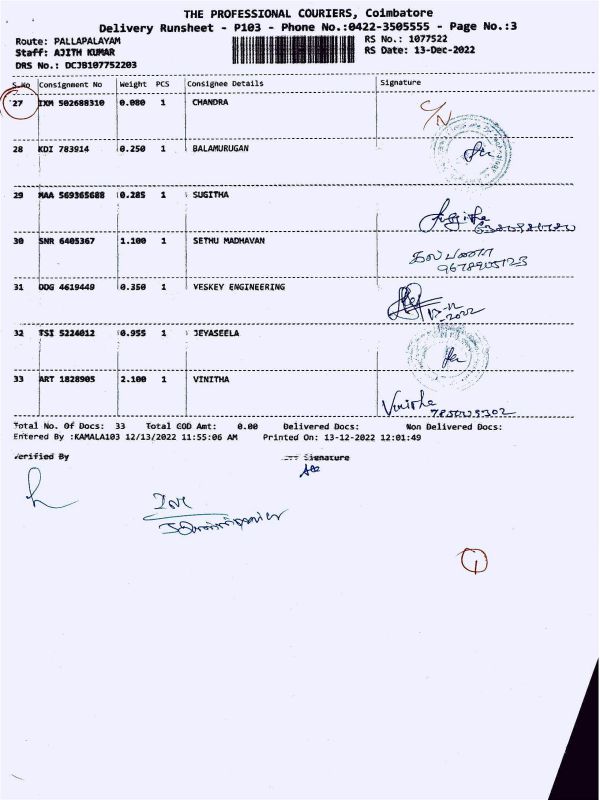 THE PROFESSIONAL COURIERS, Coimbatore
Delivery Runsheet - P103 - Phone No.:0422-3505555 - Page No.:3
Route: PALLAPALAYAM RS No.: 1077522
Staff: AJITH KUMAR RS Date: 13-Dec-2022
DRS No.: DCJB107752203
S.No Consignment No Weight PCS Consignee Details Signature
27 IXM 502688310 0.080 1 CHANDRA C/N
28 KDI 783914 0.250 1 BALAMURUGAN
29 MAA 569365688 0.285 1 SUGITHA
30 SNR 6405367 1.100 1 SETHU MADHAVAN
31 DDG 4619449 0.350 1 YESKEY ENGINEERING
13-12
-2022
32 TSI 5224012 0.955 1 JEYASEELA
33 ART 1828905 2.100 1 VINITHA
Vinitha
Total No. Of Docs: 33 Total COD Amt: 0.00 Delivered Docs: Non Delivered Docs:
Entered By :KAMALA103 12/13/2022 11:55:06 AM Printed On: 13-12-2022 12:01:49
Verified By Signature
1